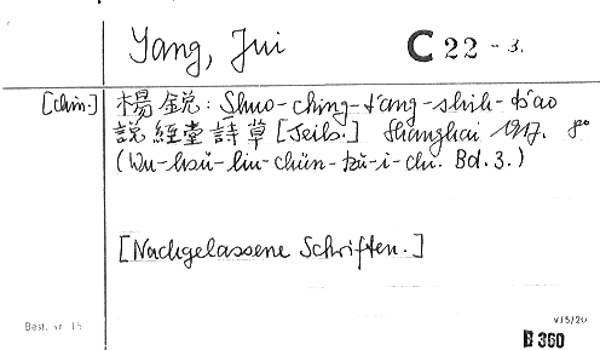 Yang, Jui C 22 - 3.
[chin.] 楊銳: Shuo-ching-t'ang-shih-ts'ao
說經堂詩草 [Teils.] Shanghai 1917. 8°
(Wu-hsü-liu-chün-tzŭ-i-chi. Bd. 3.)
[Nachgelassene Schriften.]
Best. Nr. 15 V/5/20
B 360